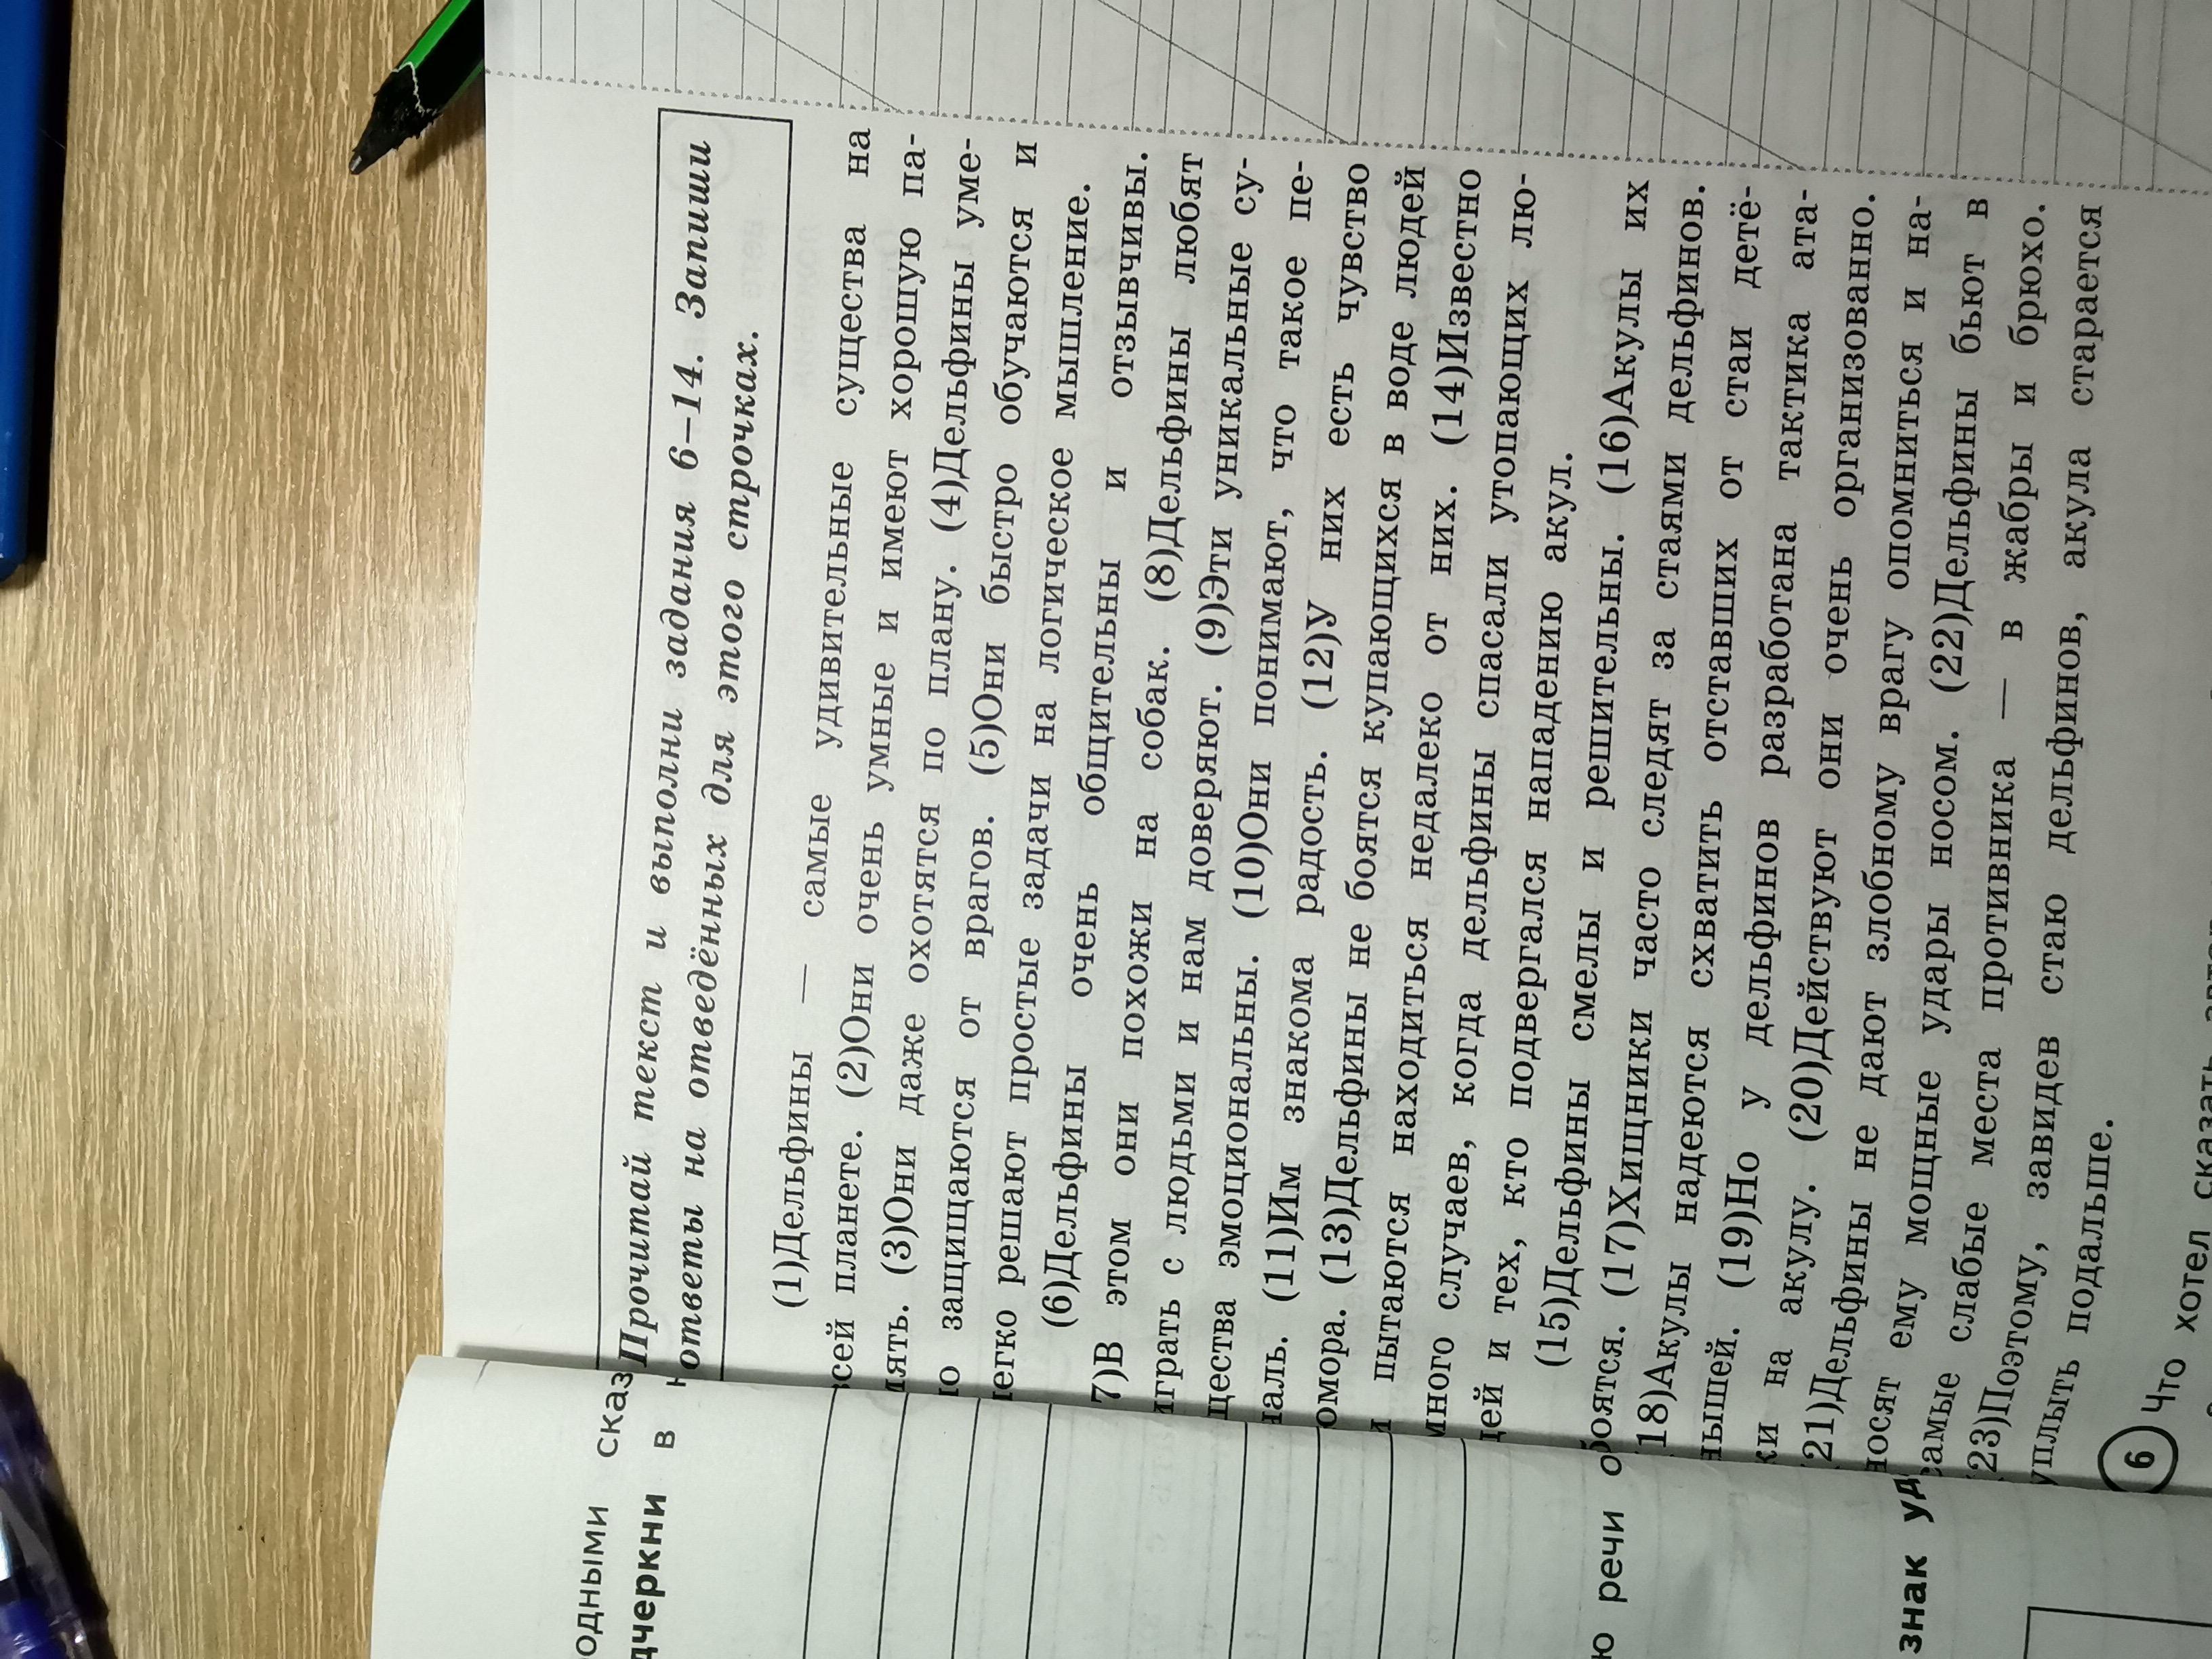 Прочитай текст и выполни задания 6–14. Запиши
ответы на отведённых для этого строчках.
(1)Дельфины — самые удивительные существа на
всей планете. (2)Они очень умные и имеют хорошую па-
мять. (3)Они даже охотятся по плану. (4)Дельфины уме-
ло защищаются от врагов. (5)Они быстро обучаются и
легко решают простые задачи на логическое мышление.
(6)Дельфины очень общительны и отзывчивы.
7)В этом они похожи на собак. (8)Дельфины любят
играть с людьми и нам доверяют. (9)Эти уникальные су-
щества эмоциональны. (10)Они понимают, что такое пе-
чаль. (11)Им знакома радость. (12)У них есть чувство
юмора. (13)Дельфины не боятся купающихся в воде людей
и пытаются находиться недалеко от них. (14)Известно
много случаев, когда дельфины спасали утопающих лю-
дей и тех, кто подвергался нападению акул.
(15)Дельфины смелы и решительны. (16)Акулы их
боятся. (17)Хищники часто следят за стаями дельфинов.
(18)Акулы надеются схватить отставших от стаи детё-
нышей. (19)Но у дельфинов разработана тактика ата-
ки на акулу. (20)Действуют они очень организованно.
(21)Дельфины не дают злобному врагу опомниться и на-
носят ему мощные удары носом. (22)Дельфины бьют в
самые слабые места противника — в жабры и брюхо.
(23)Поэтому, завидев стаю дельфинов, акула старается
уплыть подальше.
6 Что хотел сказать
одными сказ
дчеркни в
ю речи о
знак уд